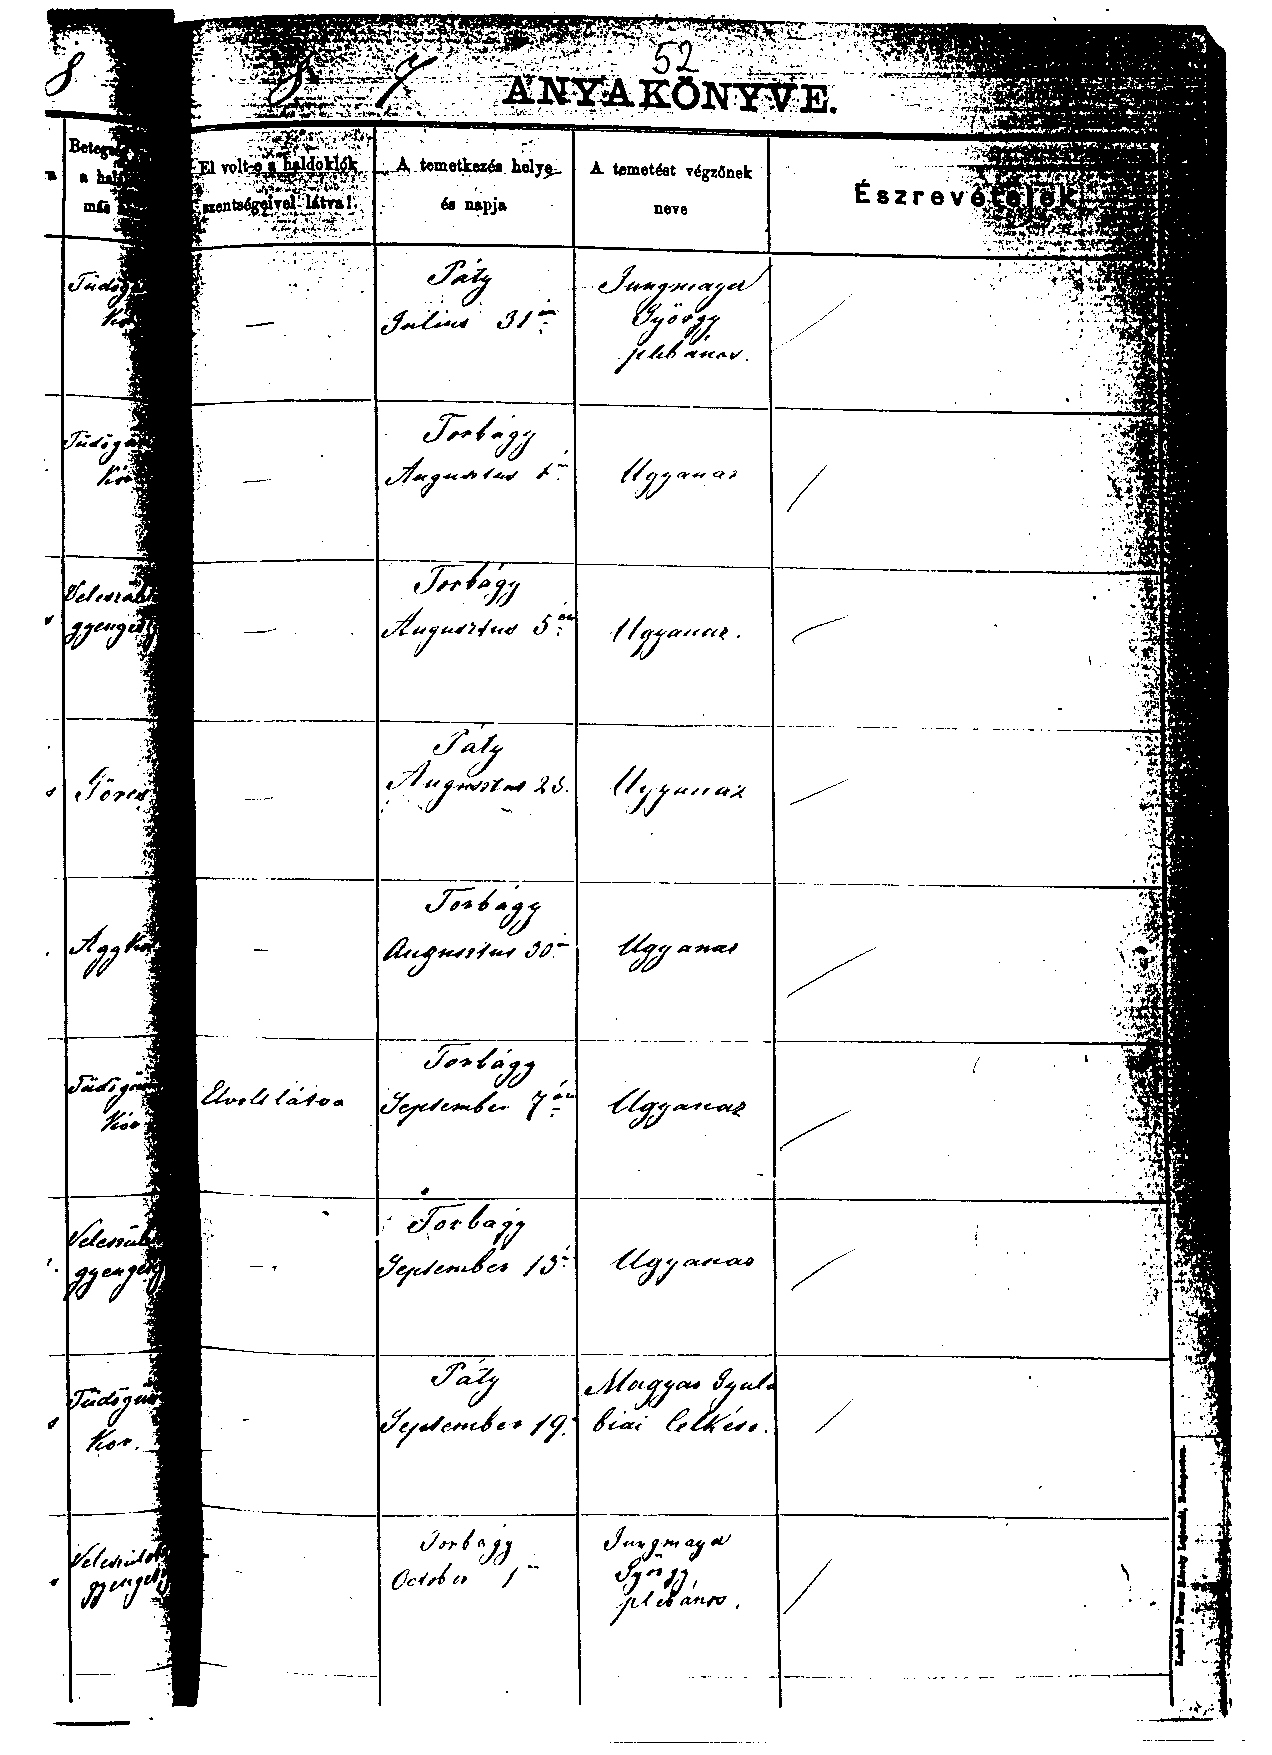 8 8 7 52
ANYAKÖNYVE.
Beteg
a hal
más
El volt-e a haldoklók
szentségeivel látva?
A temetkezés helye
és napja
A temetést végzőnek
neve
Észrevételek
Tüdőgü
Kór
—
Páty
Július 31én
Jungmayer
György
plebános.
Tüdőgü
Kór
—
Torbágy
Augusztus 1én
Ugyanaz
Veleszül
gyenges
—
Torbágy
Augusztus 5én
Ugyanaz.
Görcs
—
Páty
Augusztus 23.
Ugyanaz
Aggkór
—
Torbágy
Augusztus 30án
Ugyanaz
Tüdőgüm
Kór
Elvolt látva
Torbágy
September 7én
Ugyanaz
Veleszül
gyenges
—
Torbágy
September 13án
Ugyanaz
Tüdőgüm
Kór.
-
Páty
September 19.
Magyar Gyula
biai lelkész.
Veleszülete
gyenges
Torbágy
October 1én
Jungmayer
György,
plebános.